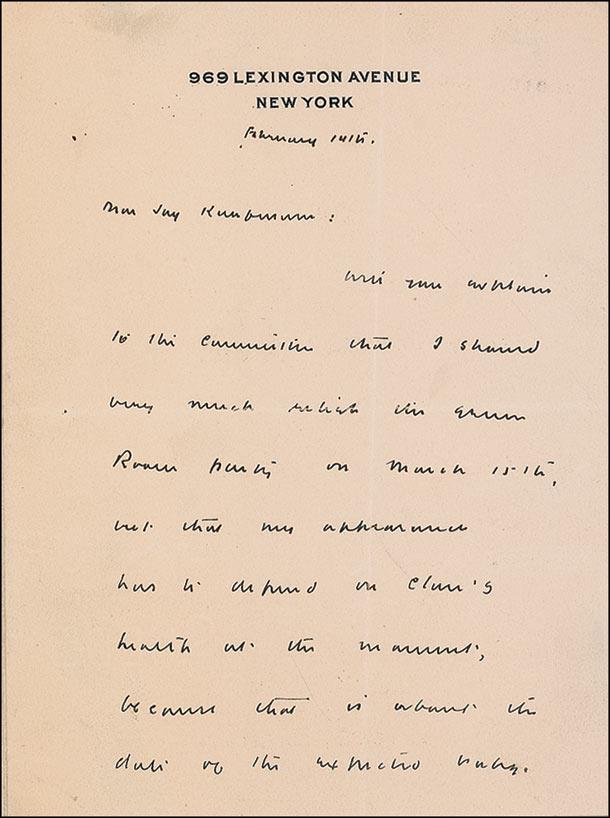 969 LEXINGTON AVENUE
NEW YORK
February 14th.
Dear Jay Kaufmann:
Will you explain
to the Committee that I should
very much relish the Green
Room party on March 15th,
but that my appearance
has to depend on Clare's
health at the moment,
because that is about the
date of the expected baby.